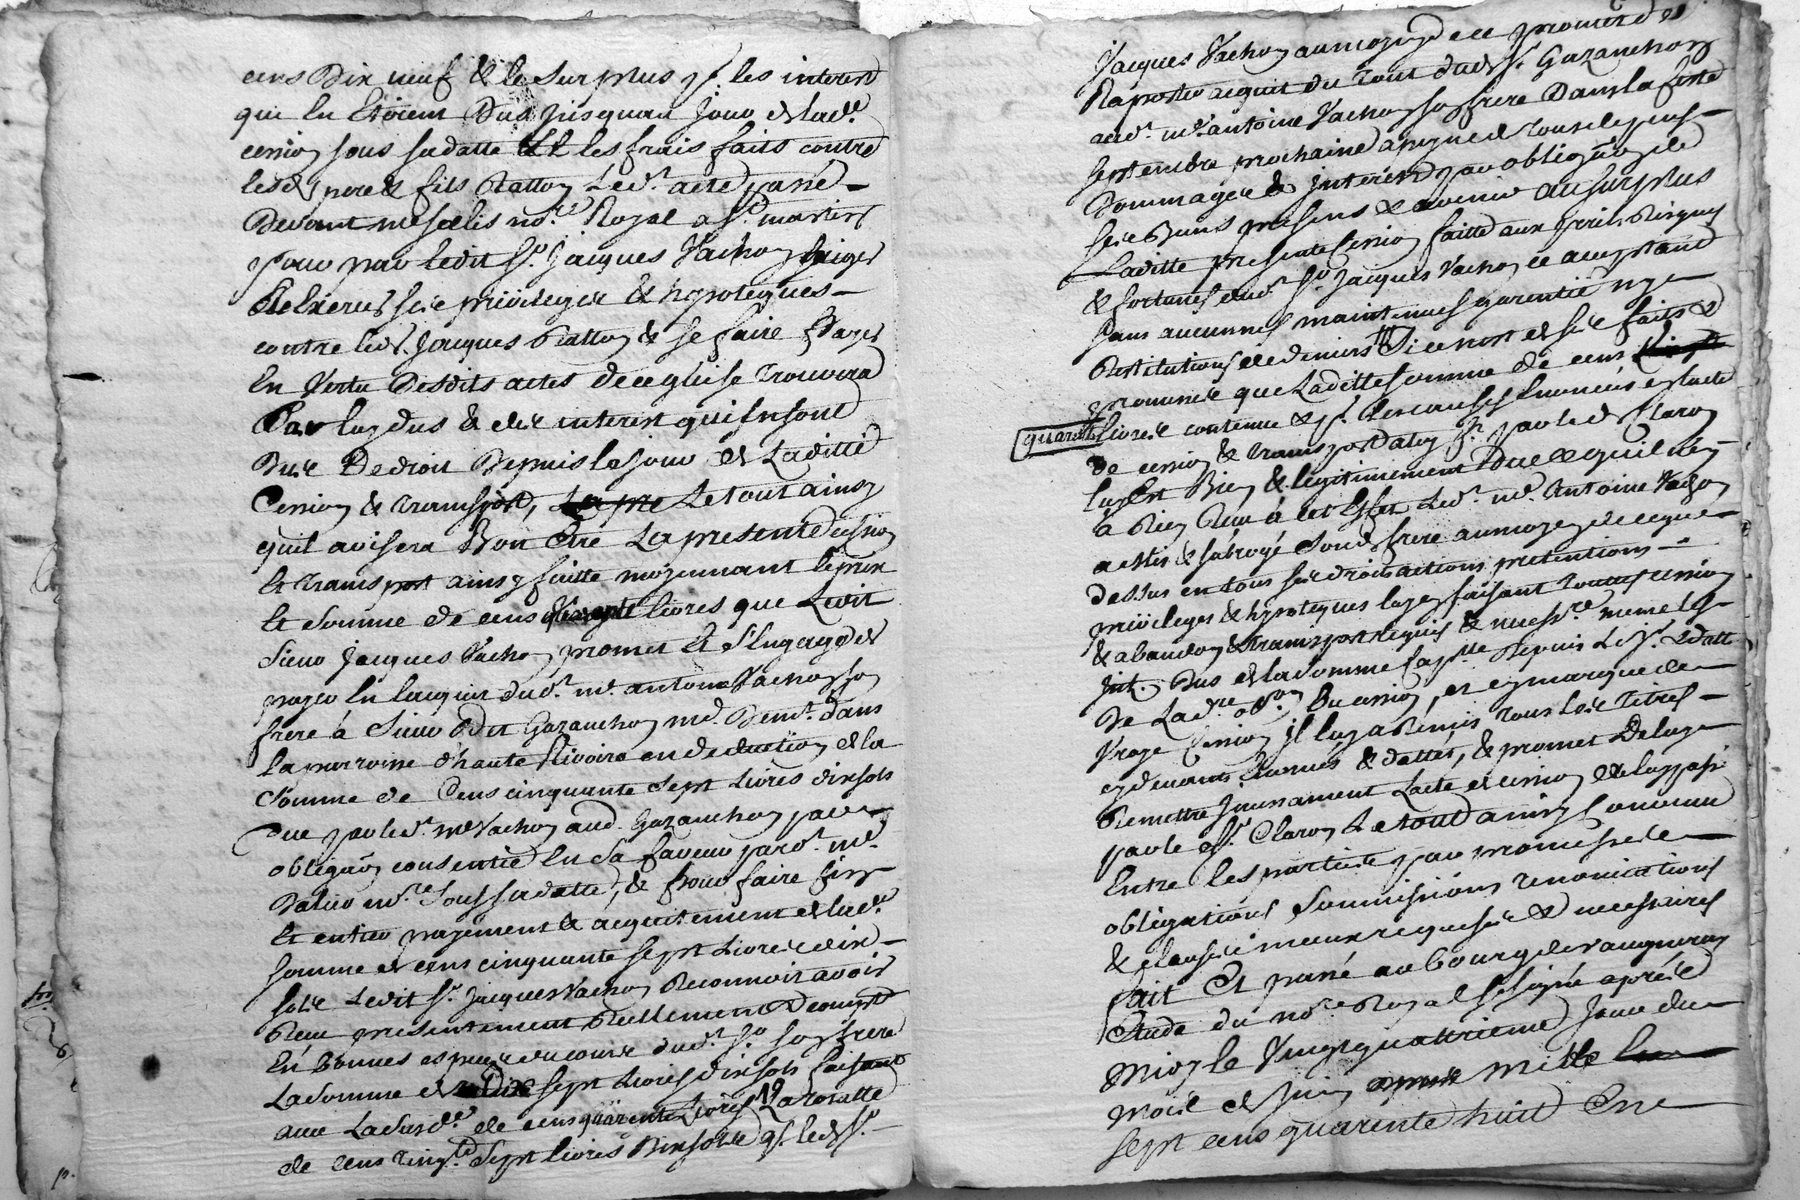 cens Dix neuf & le surplus pr. les interest
qui en Etoient Dus jusquau jour de lad.e
cession sous sa datte Et les frais faits contre
lesd. pere & fils Ratton Led.t acte passé
Devant me no.re Royal a St. martin
pour par ledit Sr. jacques Vachon
Exercer ses privileges & hypoteques
contre led. Jacques Ratton & se faire Payer
En Vertu Desdits actes de ce qu'il se trouvera
Par luy dus & des interest qui en sont
Dus De droit Depuis le jour de Laditte
Cession & transport, Le tout ainsy
quil avisera Bon Etre La presente cession
Et transport ainsy faitte moyennant le prix
Et somme de cens quarante livres que Ledit
Sieur Jacques Vachon promet Et S'Engage de
payer En lacquit dud.t me. antoine Vachon son
frere à Sieur Gazanchon md. Demt. dans
La parroisse d'haute Rivoire en deduction de la
Somme de Cens cinquante Sept Livres dix sols
due par led.t me Vachon aud. Gazanchon par
obligaon consentie En sa faveur pard.t me.
no.re Sous sa datte, & pour faire fin
Et entier payement & acquitement de lad.e
Somme de cens cinquante sept Livres dix
sols Ledit Sr. jacques Vachon Reconnoit avoir
Receu presentement Reellement & compt
En Bonnes especes du cours dud.t Sr. son frere
La Somme de Dix sept Livres dix sols faisant
avec La susd.e de cens quarante Livres La totalle
de cens cinq.te Sept livres Dix sols qe. led. Sr.
Jacques Vachon au moyen de ce promet de
Raporter acquit du tout dud. Sr. Gazanchon
aud.t me antoine Vachon son frere Dans la feste
septembre prochaine a peyne de tous depens
Dommages & Interests par obligaon de
ses Biens presens & avenir au surplus
Laditte presente Cession faitte aux peril Risques
& fortunes dud.t Sr. Jacques Vachon ce acceptant
sans aucunnes maintenues garentie ny
Restitutions de deniers Si ce n'est de ses faits &
promesses que Laditte Somme de cens
quarante livres contenue & pr. les causes Enoncées en l'acte
de cession & transport a luy fr. par led. Claron
luy Est Bien & legitimement Due & qu'il n'en
à Rien Receu à cet Effet Led.t me. Antoine Vachon
a mis & subrogé Sond. frere au moyen de ce que
dessus en tous ses droits actions pretentions
privileges & hypoteques luy en faisant toutes cession
& abandon & transport requis & necess.re meme les
Int. Dus de la somme cap.lle Depuis le jr. & datte
De Lad.tte cession, et en marque de
Vraye Cession il luy a Remis tous Les Titres
cy devant Enoncés & dattés, & promet De luy
Remettre Incessament Lacte de cession à luy passé
par le d. Sr. Claron Le tout ainsy Convenu
Entre les parties par promesses
obligations Soumissions renonciations
& clauses à meme requises & necessaires
fait Et passé au bourg de vaugneray
Etude du no.re Royal Soussigné aprés
midy le Vingt quattrieme Jour du
mois de juin mille
sept cens quarante huit En